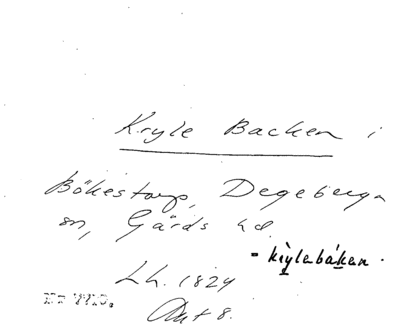 Kryle Backen i
Bökestorp, Degeberga
sn, Gärds hd.
- kìylabákan.
Lh. 1824
Akt 8.